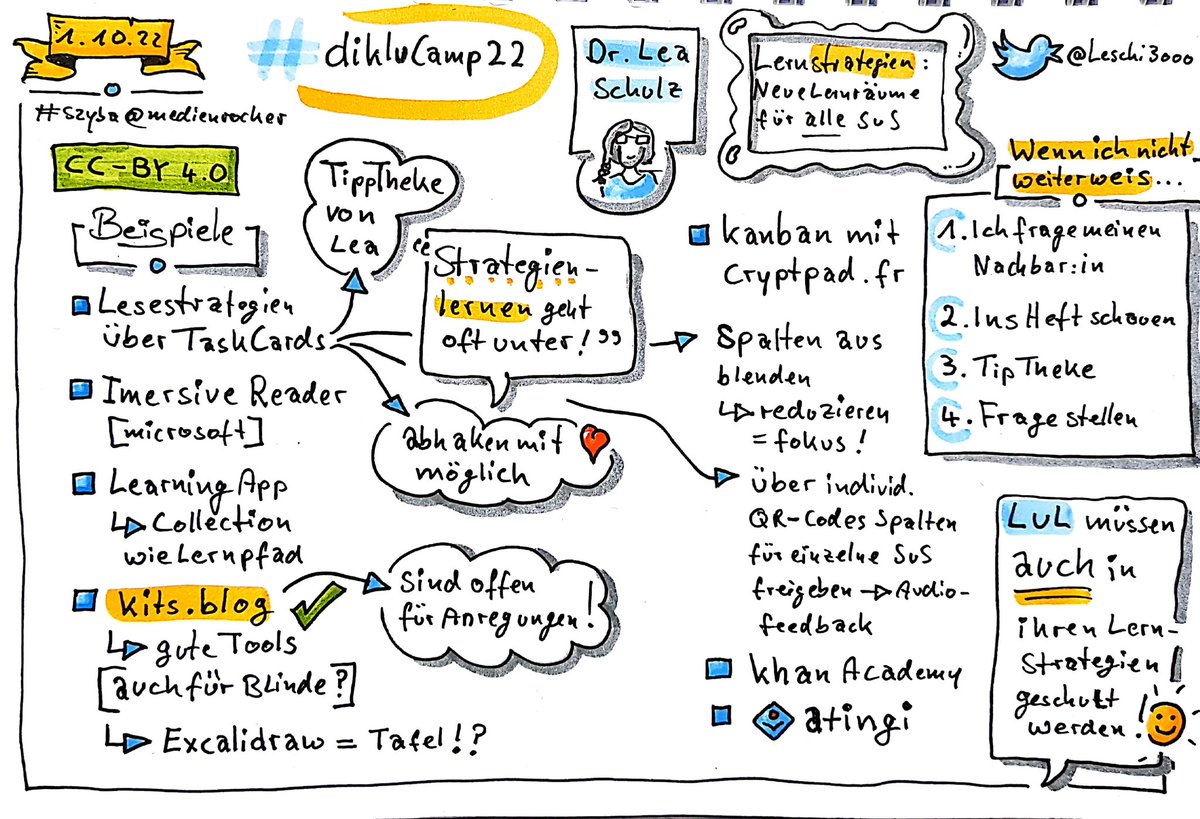 1.10.22
#dikluCamp22
Dr. Lea
Schulz
Lernstrategien:
Neue Lernräume
für alle SuS
@Leschi3000
#szyba@medienrocker
CC-BY 4.0
Beispiele
Lesestrategien
über TaskCards
TippTheke
von
Lea
abhaken mit ♥
möglich
Imersive Reader
[microsoft]
Learning App
↳ Collection
wie Lernpfad
kits.blog ✓
↳ gute Tools
[auch für Blinde?]
↳ Excalidraw = Tafel!?
Sind offen
für Anregungen!
"Strategien-
lernen geht
oft unter!"
Kanban mit
Cryptpad.fr
Spalten aus
blenden
↳ reduzieren
= fokus!
über individ.
QR-Codes Spalten
für einzelne SuS
freigeben → Audio-
feedback
khan Academy
atingi
Wenn ich nicht
weiterweis...
1. Ich frage meinen
Nachbar:in
2. Ins Heft schauen
3. TipTheke
4. Frage stellen
LuL müssen
auch in
ihren Lern-
strategien
geschult
werden!